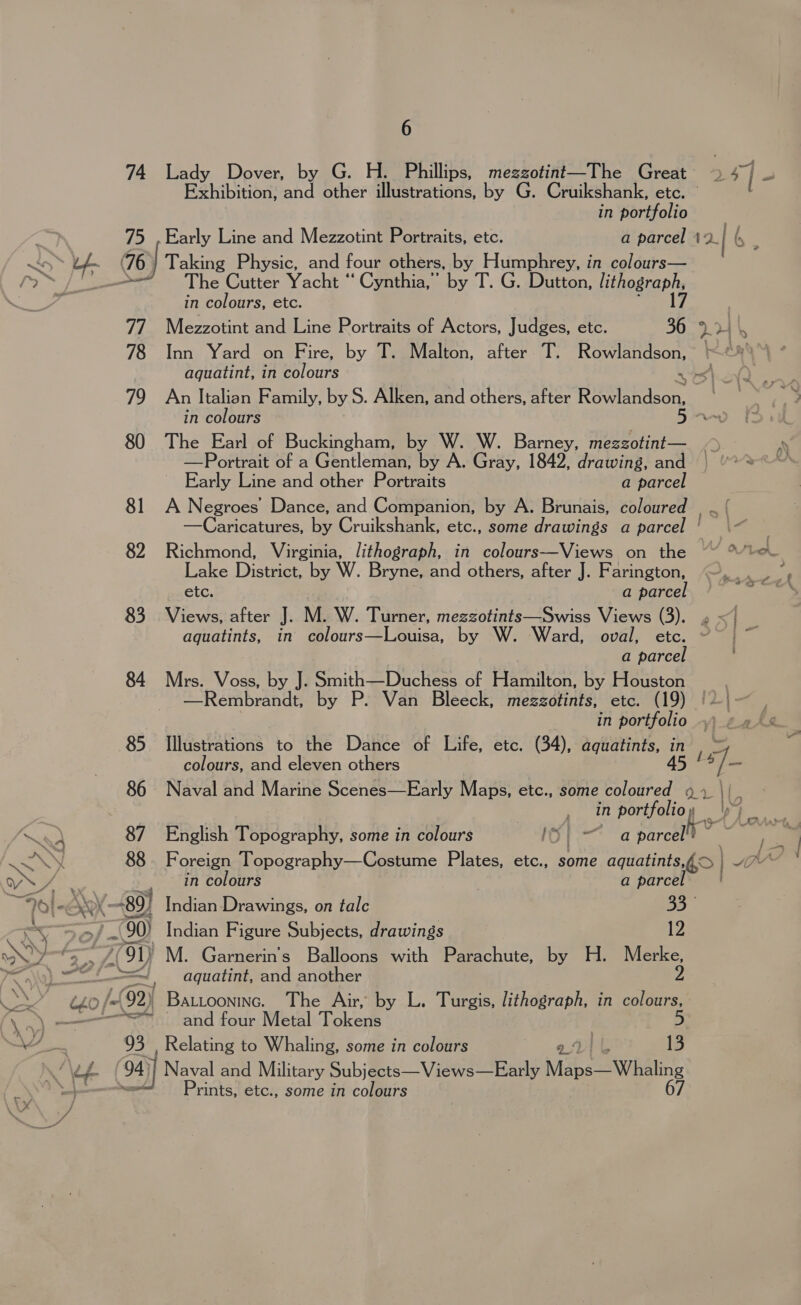 6
74 Lady Dover, by G. H. Phillips, mezzotint—The Great
Exhibition, and other illustrations, by G. Cruikshank, etc.
in portfolio
75 Early Line and Mezzotint Portraits, etc. a parcel
76 Taking Physic, and four others, by Humphrey, in colours—
The Cutter Yacht “Cynthia,” by T. G. Dutton, lithograph,
in colours, etc. 17
77 Mezzotint and Line Portraits of Actors, Judges, etc. 36
78 Inn Yard on Fire, by T. Malton, after T. Rowlandson,
aquatint, in colours
79 An Italian Family, by S. Alken, and others, after Rowlandson,
in colours 5
80 The Earl of Buckingham, by W. W. Barney, mezzotint—
—Portrait of a Gentleman, by A. Gray, 1842, drawing, and
Early Line and other Portraits a parcel
81 A Negroes' Dance, and Companion, by A. Brunais, coloured
—Caricatures, by Cruikshank, etc., some drawings a parcel
82 Richmond, Virginia, lithograph, in colours—Views on the
Lake District, by W. Bryne, and others, after J. Farington,
etc. a parcel
83 Views, after J. M. W. Turner, mezzotints—Swiss Views (3).
aquatints, in colours—Louisa, by W. Ward, oval, etc.
a parcel
84 Mrs. Voss, by J. Smith—Duchess of Hamilton, by Houston
—Rembrandt, by P. Van Bleeck, mezzotints, etc. (19)
in portfolio
85 Illustrations to the Dance of Life, etc. (34), aquatints, in
colours, and eleven others 45
86 Naval and Marine Scenes—Early Maps, etc., some coloured
in portfolio
87 English Topography, some in colours a parcel
88 Foreign Topography—Costume Plates, etc., some aquatints,
in colours a parcel
89 Indian Drawings, on talc 33
90 Indian Figure Subjects, drawings 12
91 M. Garnerin's Balloons with Parachute, by H. Merke,
aquatint, and another 2
92 Ballooning. The Air, by L. Turgis, lithograph, in colours,
and four Metal Tokens 5
93 Relating to Whaling, some in colours 13
94 Naval and Military Subjects—Views—Early Maps—Whaling
Prints, etc., some in colours 67